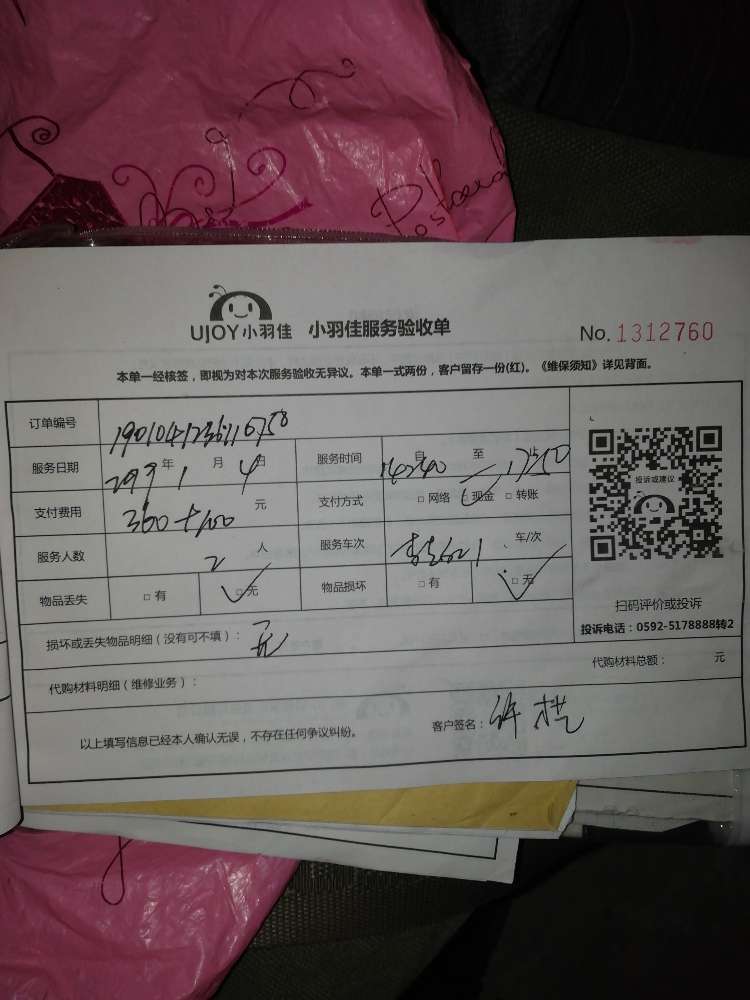 Postcard
UJOY小羽佳 小羽佳服务验收单 No. 1312760
本单一经核签，即视为对本次服务验收无异议。本单一式两份，客户留存一份(红)。《维保须知》详见背面。
订单编号
服务日期 年 1 月 4 日 服务时间 自 至 止
支付费用 360+100 元 支付方式 □ 网络 □ 现金 □ 转账
服务人数 2 人 服务车次 车/次
物品丢失 □ 有 □ 无 物品损坏 □ 有 □ 无
投诉或建议
扫码评价或投诉
投诉电话：0592-5178888转2
损坏或丢失物品明细（没有可不填）： 无
代购材料明细（维修业务）： 代购材料总额： 元
以上填写信息已经本人确认无误，不存在任何争议纠纷。 客户签名： 许